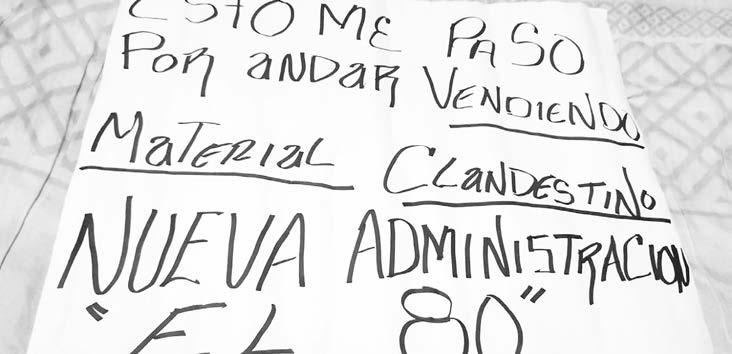 ESTO ME PASO
POR ANDAR VENDIENDO
MATERIAL CLANDESTINO
NUEVA ADMINISTRACION
"EL 80"